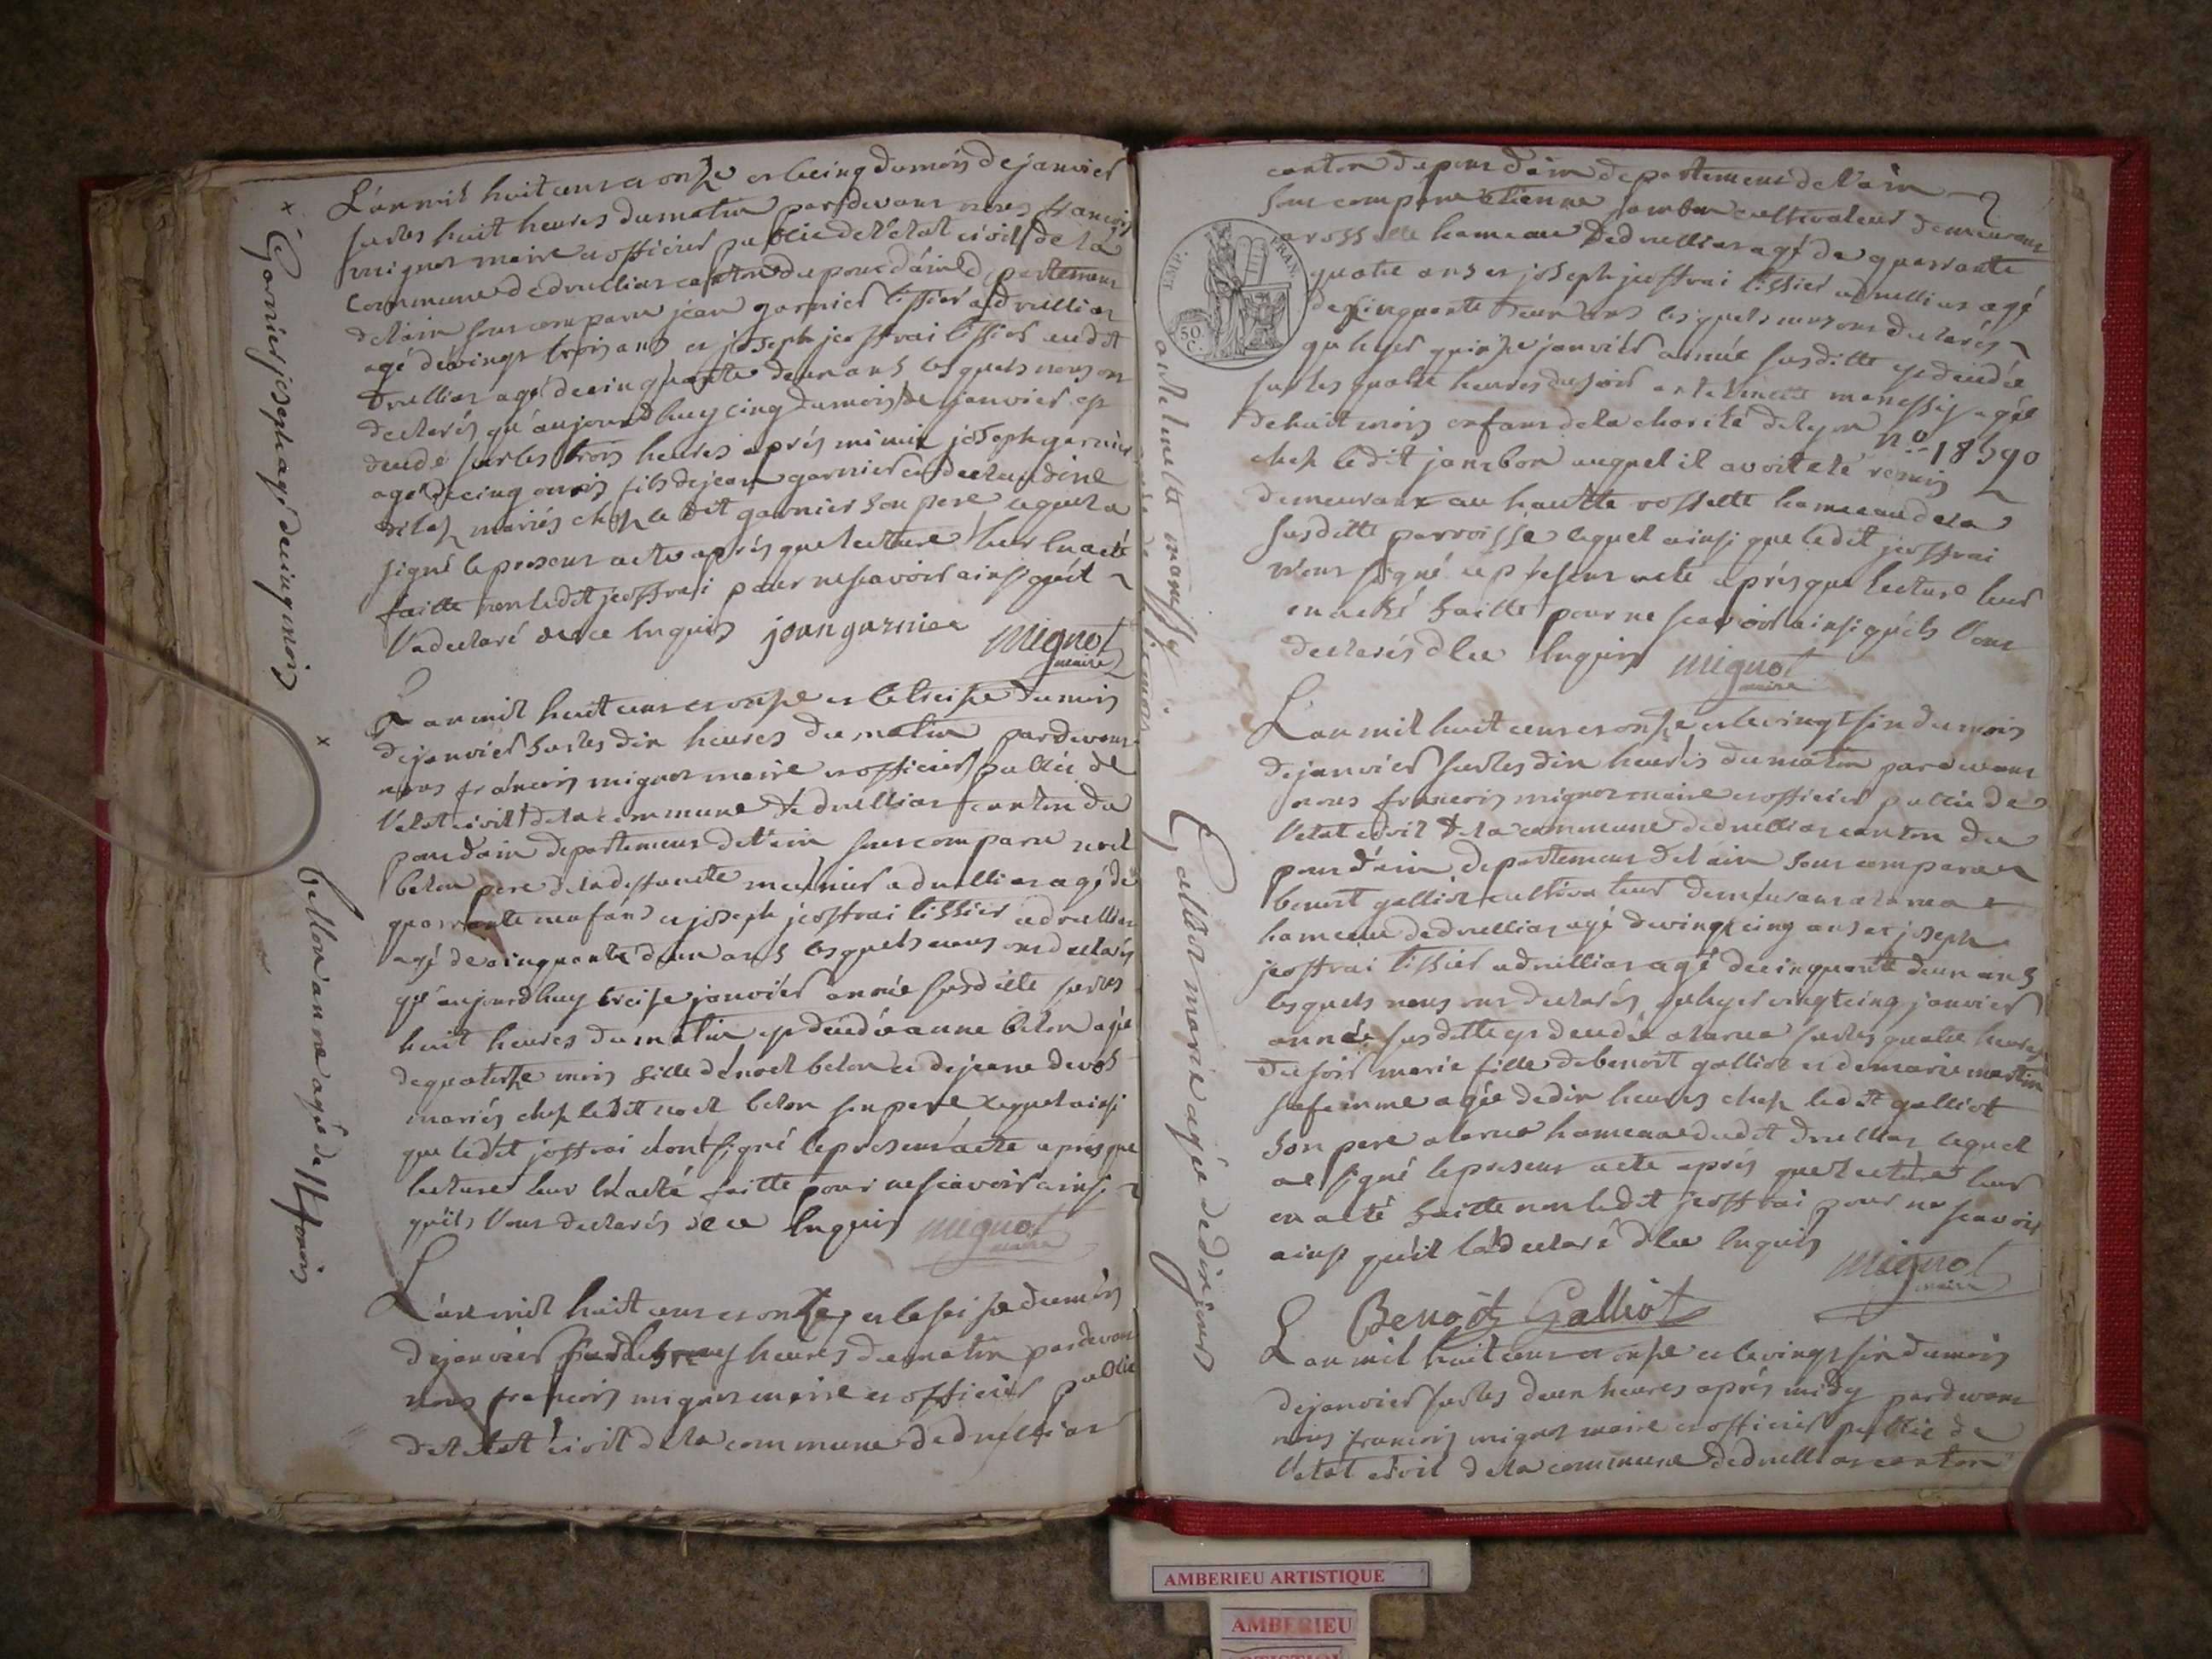 L'an mil huit cens et onze et le cinq du mois de janvier
sur les huit heures du matin pardevant nous francois
mignot maire et officier public de l'etat civil de la
commune de druillias canton du pont d'ain departement
de l'ain sont comparu jean garnier tissier a druillias
agé de vingt trois ans et joseph jeoffrai tissier audit
druillias agé de cinquante deux ans lesquels nous ont
declarés qu'aujourdhuy cinq du mois de janvier est
décédé sur les trois heures après minuit joseph garnier
agé de cinq mois fils de jean garnier et de claudine
mariés chez le dit garnier son pere lequel a
signé le present acte après que lecture leur en a été
faitte non ledit jeoffrai pour ne scavoir ainsi qu'il
l'a declaré de ce enquis jean garnier mignot
maire
x Garnier joseph agé de cinq mois
L'an mil huit cens et onze et le treize du mois
de janvier sur les dix heures du matin pardevant
nous francois mignot maire et officier public de
l'etat civil de la commune de druillias canton du
pont d'ain departement de l'ain sont comparu noel
belon pere de la deffuncte meunier a druillias agé de
quarrante neuf ans et joseph jeoffrai tissier a druillias
agé de cinquante deux ans lesquels nous ont declarés
qu'aujourdhuy treize janvier année susditte sur les
huit heures du matin est décédée anne belon agée
de quatorze mois fille de noel belon et de jeane
mariés chez ledit noel belon son pere lequel ainsi
que ledit joffrai n'ont signé le present acte après que
lecture leur en a été faitte pour ne scavoir ainsi
qu'ils l'ont declarés de ce enquis mignot
maire
x bellon anne agée de 14 mois
L'an mil huit cens et onze et le seize du mois
de janvier sur les heures du matin pardevant
nous francois mignot maire et officier public
de l'etat civil de la commune de druillias
canton du pont d'ain departement de l'ain
sont comparu etienne jambon cultivateur demeurant
a rossette hameau de druillias agé de quarrante
quatre ans et joseph jeoffrai tissier a druillias agé
de cinquante deux ans lesquels nous ont declarés
qu'hyer quinze janvier année susditte est décédée
sur les quatre heures du soir antelmette manessy agée
de huit mois enfant de la charité de lyon n° 18590
chez ledit jambon auquel il avoit eté remis
demeurant au hautte rossette hameau de la
susditte parroisse lequel ainsi que ledit jeoffrai
n'ont signé le présent acte après que lecture leur
en a eté faitte pour ne scavoir ainsi qu'ils l'ont
declarés de ce enquis mignot
maire
TIMP. FRAN.
50 C.
antelmette manessy
L'an mil huit cens et onze et le vingt six du mois
de janvier sur les dix heures du matin pardevant
nous francois mignot maire et officier public de
l'etat civil de la commune de druillias canton du
pont d'ain departement de l'ain sont comparu
benoit galliot cultivateur demeurant a la rua
hameau de druillias agé de vingt cinq ans et joseph
jeoffrai tissier a druillias agé de cinquante deux ans
lesquels nous ont declarés qu'hyer vingt cinq janvier
année susditte est décédée a la rua sur les quatre heures
du soir marie fille de benoit galliot et de marie martin
sa femme agée de dix heures chez ledit galliot
son pere a la rua hameau dudit druillias lequel
a signé le present acte après que lecture leur
en a eté faitte non ledit jeoffrai pour ne scavoir
ainsi qu'il l'a declaré de ce enquis mignot
maire
Benoit Galliot
Galliot marie agée de dix jours
L'an mil huit cens et onze et le vingt six du mois
de janvier sur les deux heures après midy pardevant
nous francois mignot maire et officier public de
l'etat civil de la commune de druillias canton
AMBERIEU ARTISTIQUE
AMBERIEU
ARTISTIQUE